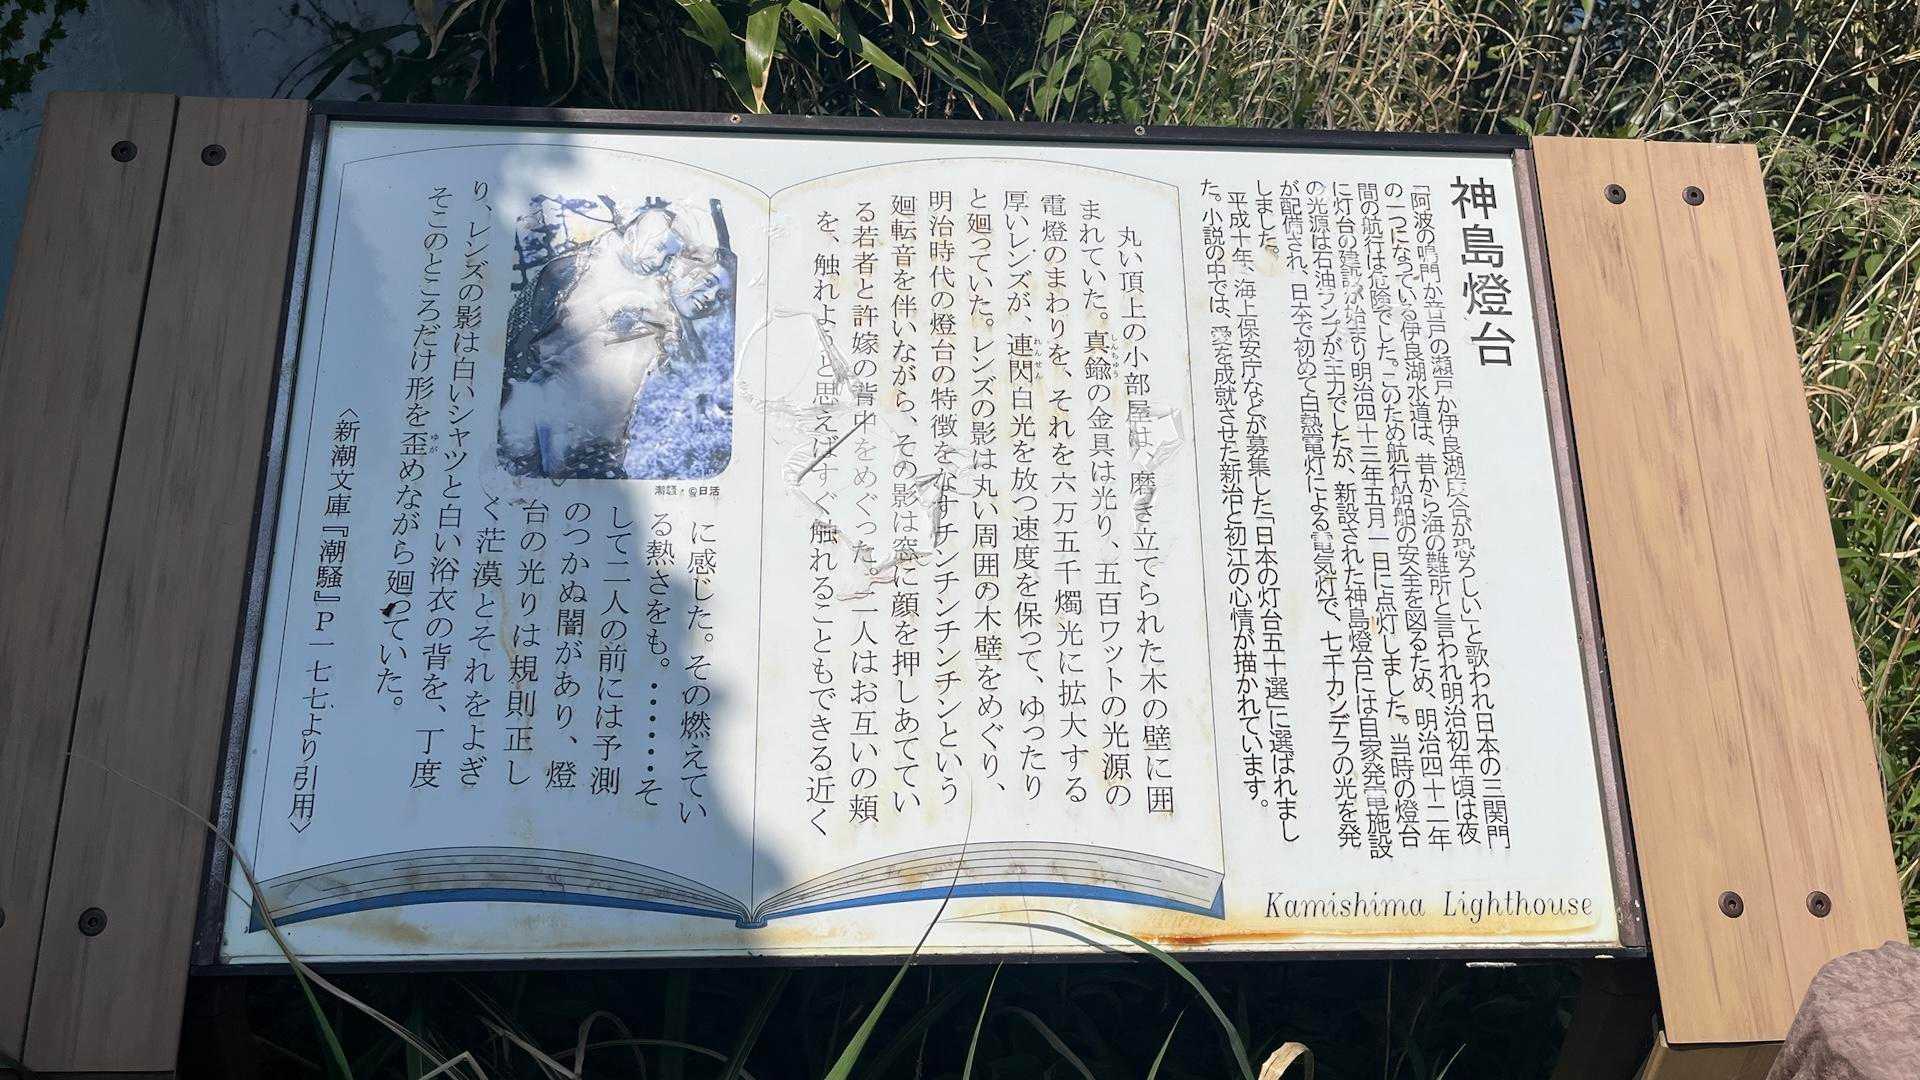 神島燈台
「阿波の鳴門か音戸の瀬戸か伊良湖度合が恐ろしい」と歌われ日本の三関門
の一つになっている伊良湖水道は、昔から海の難所と言われ明治初年頃は夜
間の航行は危険でした。このため航行船舶の安全を図るため、明治四十二年
に灯台の建設が始まり明治四十三年五月一日に点灯しました。当時の燈台
の光源は石油ランプが主力でしたが、新設された神島燈台には自家発電施設
が配備され、日本で初めて白熱電灯による電気灯で、七千カンデラの光を発
しました。
平成十年、海上保安庁などが募集した「日本の灯台五十選」に選ばれまし
た。小説の中では、愛を成就させた新治と初江の心情が描かれています。
Kamishima Lighthouse
丸い頂上の小部屋は、磨き立てられた木の壁に囲
まれていた。真鍮の金具は光り、五百ワットの光源の
しんちゅう
電燈のまわりを、それを六万五千燭光に拡大する
厚いレンズが、連閃白光を放つ速度を保って、ゆったり
れんせん
と廻っていた。レンズの影は丸い周囲の木壁をめぐり、
明治時代の燈台の特徴をなすチンチンチンチンという
廻転音を伴いながら、その影は窓に顔を押しあててい
る若者と許嫁の背中をめぐった。二人はお互いの頬
を、触れようと思えばすぐ触れることもできる近く
に感じた。その燃えてい
る熱さをも。・・・・・・そ
して二人の前には予測
のつかぬ闇があり、燈
台の光りは規則正し
く茫漠とそれをよぎ
り、レンズの影は白いシャツと白い浴衣の背を、丁度
そこのところだけ形を歪めながら廻っていた。
ゆが
〈新潮文庫『潮騒』P一七七より引用〉
潮騒・©日活